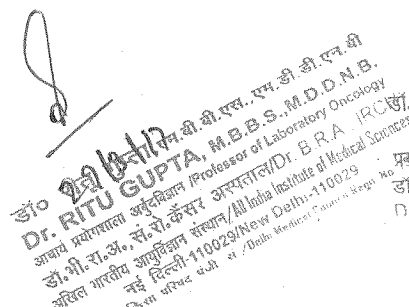 डॉ० एम.बी.बी.एस., एम.डी.डी.एन.बी
Dr. RITU GUPTA, M.B.B.S., M.D.D.N.B.
आचार्य प्रयोगशाला अर्बुदविज्ञान /Professor of Laboratory Oncology
डॉ.भी.रा.अ., सं.रो.कैंसर अस्पताल/Dr. B.R.A. IRC
अखिल भारतीय आयुर्विज्ञान संस्थान/All India Institute of Medical Sciences
नई दिल्ली-110029/New Delhi-110029
परिषद /Delhi Medical Council Regn No